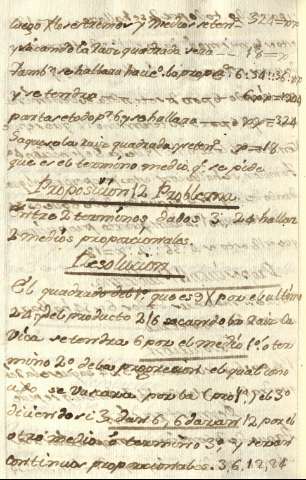 luego los estremos y medios se tend.ª 324=
y sacando la Raiz quadrada será — 18 =
tamb.ⁿ se hallará haci.do la propor.on 6:54::36:
y se tendrá
por tanto y se hallará — = 324
Saquese la raiz quadrada y se ten.ª = 18
que es el termino medio q.e se pide
Proposicion 12 Problema
Entre 2 terminos dados 3 24 hallar
2 medios proporcionales
Resolucion
El quadrado del 1º que es 9 X por el ultimo
24, del producto 216 sacando la raiz cu
vica se tendra 6 por el medio 1º o ter
mino 2º de la progresion el qual cono
cido se sacara por la (pro 1ª) el 3º
diciendo si 3 dan 6, 6 daran 12 por el
otro medio o termino 3º, y seran
continuos proporcionales 3, 6, 12, 24